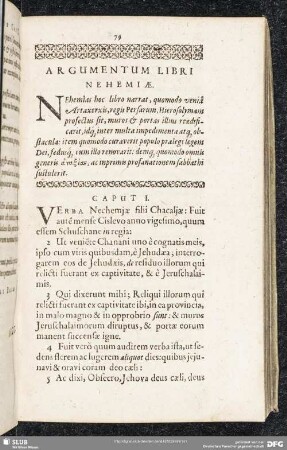 79
ARGUMENTUM LIBRI
NEHEMIÆ.
NEhemias hoc libro narrat, quomodo veniâ
Artaxerxis, regis Persarum, Hierosolymam
profectus sit, muros & portas illius reædifi-
carit, idq́, inter multa impedimenta atq́, ob-
stacula: item quomodo curaverit populo prælegi legem
Dei, fœdusq́, cum illo renovarit: deniq́, quomodo omnis
generis
ac inprimis profanationem sabbathi
sustulerit.
CAPUT I.
VERBA Nechemjæ filii Chacaljæ: Fuit
autē mense Cislevo anno vigesimo, quum
essem Schuschane in regia;
2 Ut venire Chanani uno è cognatis meis,
ipso cum viris quibusdam, è Jehudæa; interro-
garem eos de Jehudæis, de residuo illorum qui
relicti fuerant ex captivitate, & è Jeruschalai-
mis.
3 Qui dixerunt mihi; Reliqui illorum qui
relicti fuerant ex captivitate ibi, in ea provincia,
in malo magno & in opprobrio sunt: & muros
Jeruschalaimorum diruptus, & portæ eorum
manent succensæ igne.
4 Fuit verò quum audirem verba ista, ut se-
dens flerem ac lugerem aliquot dies: quibus jeju-
navi & oravi coram deo cæli:
5 Ac dixi, Obsecro, Jehova deus cæli, deus
SLUB
Wir führen Wissen.
DFG